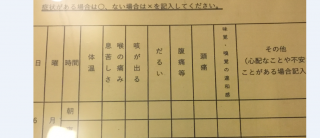 症状がある場合は○、ない場合は×を記入してください。
日
曜
時間
体温
息苦しさ
喉の痛み
咳が出る
だるい
腹痛等
頭痛
味覚・嗅覚の違和感
その他
(心配なことや不安
ことがある場合記入
6
月
朝